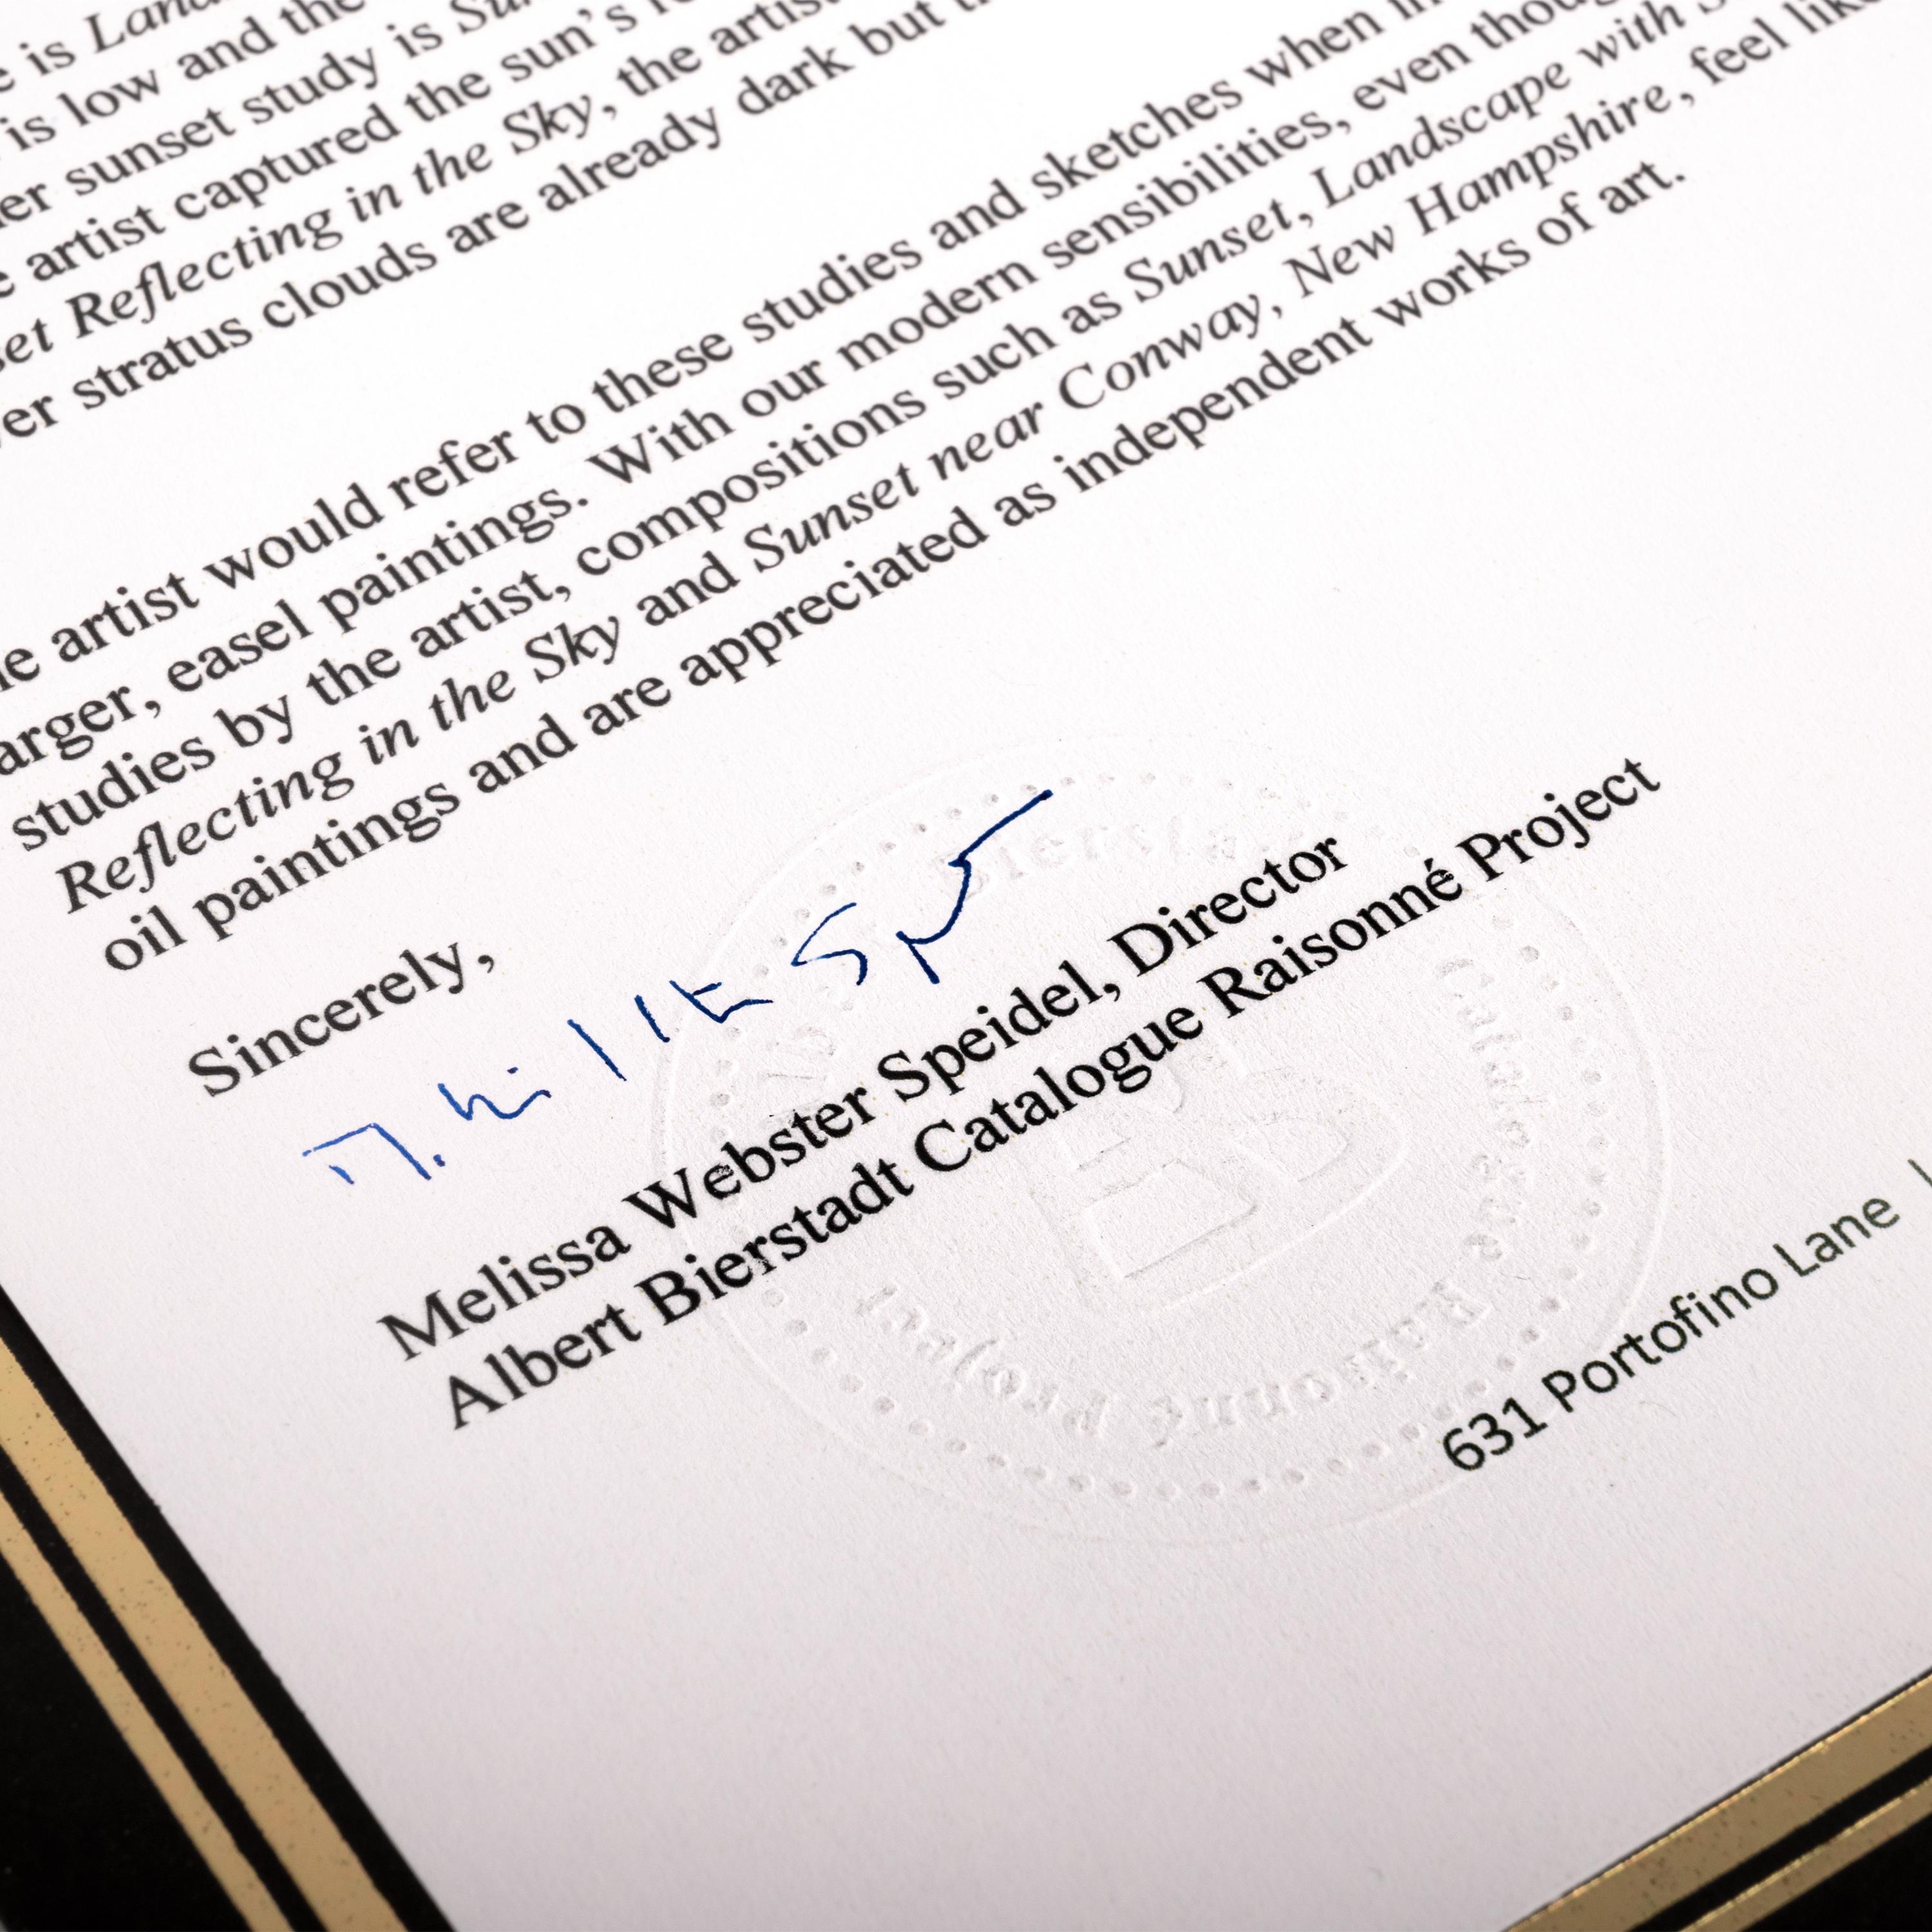 is Land
is low and the
sunset study is
artist captured the sun's
Reflecting in the Sky, the artist
stratus clouds are already dark but
artist would refer to these studies and sketches when
easel paintings. With our modern sensibilities, even
studies by the artist, compositions such as Sunset, Landscape with
Reflecting in the Sky and Sunset near Conway, New Hampshire, feel
oil paintings and are appreciated as independent works of art.
Sincerely,
Melissa Webster Speidel, Director
Albert Bierstadt Catalogue Raisonné Project
631 Portofino Lane |